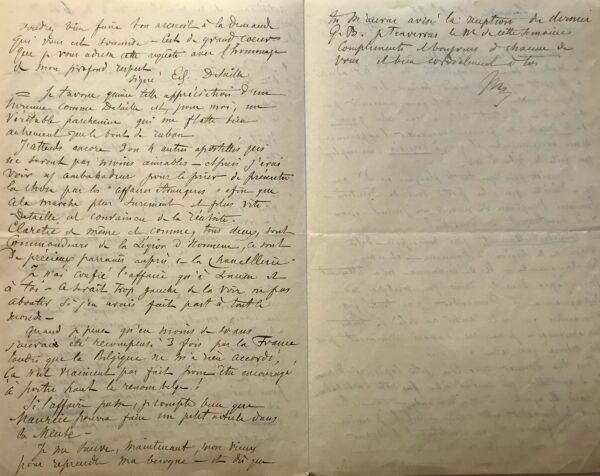 voudrez bien faire bon accueil à la demande
qui vous est soumise - C'est de grand coeur
que je vous adresse cette requête avec l'hommage
de mon profond respect.
signé: Ed. Detaille
= Je t'avoue qu'une telle appréciation d'un
homme comme Detaille est, pour moi, un
véritable parchemin qui me flatte bien
autrement que le bout de ruban
J'attends encore 3 ou 4 autres apostilles qui
ne seront pas moins aimables - Après j'irai
voir ambassadeur pour le prier de présenter
la chose par les "affaires étrangères" afin que
cela marche plus surement et plus vite.
Detaille est convaincu de la réussite.
Claretie de même et comme, tous deux, sont
Commandeurs de la Légion d'Honneur, ce sont
de précieux parrains auprès de la Chancellerie -
Je n'ai confié l'affaire qu'à Lucien et
à toi - Ce serait trop gauche de la voir ne pas
aboutir si j'en avais fait part à tout le
monde -
Quand je pense qu'en moins de 10 ans
j'aurai été récompensé 3 fois par la France
tandis que la Belgique ne m'a rien accordé,
ça n'est vraiment pas fait pour être encouragé
à porter haut le renom belge!
Si l'affaire passe, je compte bien que
Maurice pourra faire un petit article dans
la Meuse -
Je me sauve, maintenant, mon vieux
pour reprendre ma besogne - et dis que
tu m'auras avisé la réception du dernier
G.B. je t'enverrai le No de cette semaine
Compliments et bonjours d'chacun de
vous et bien cordialement à toi